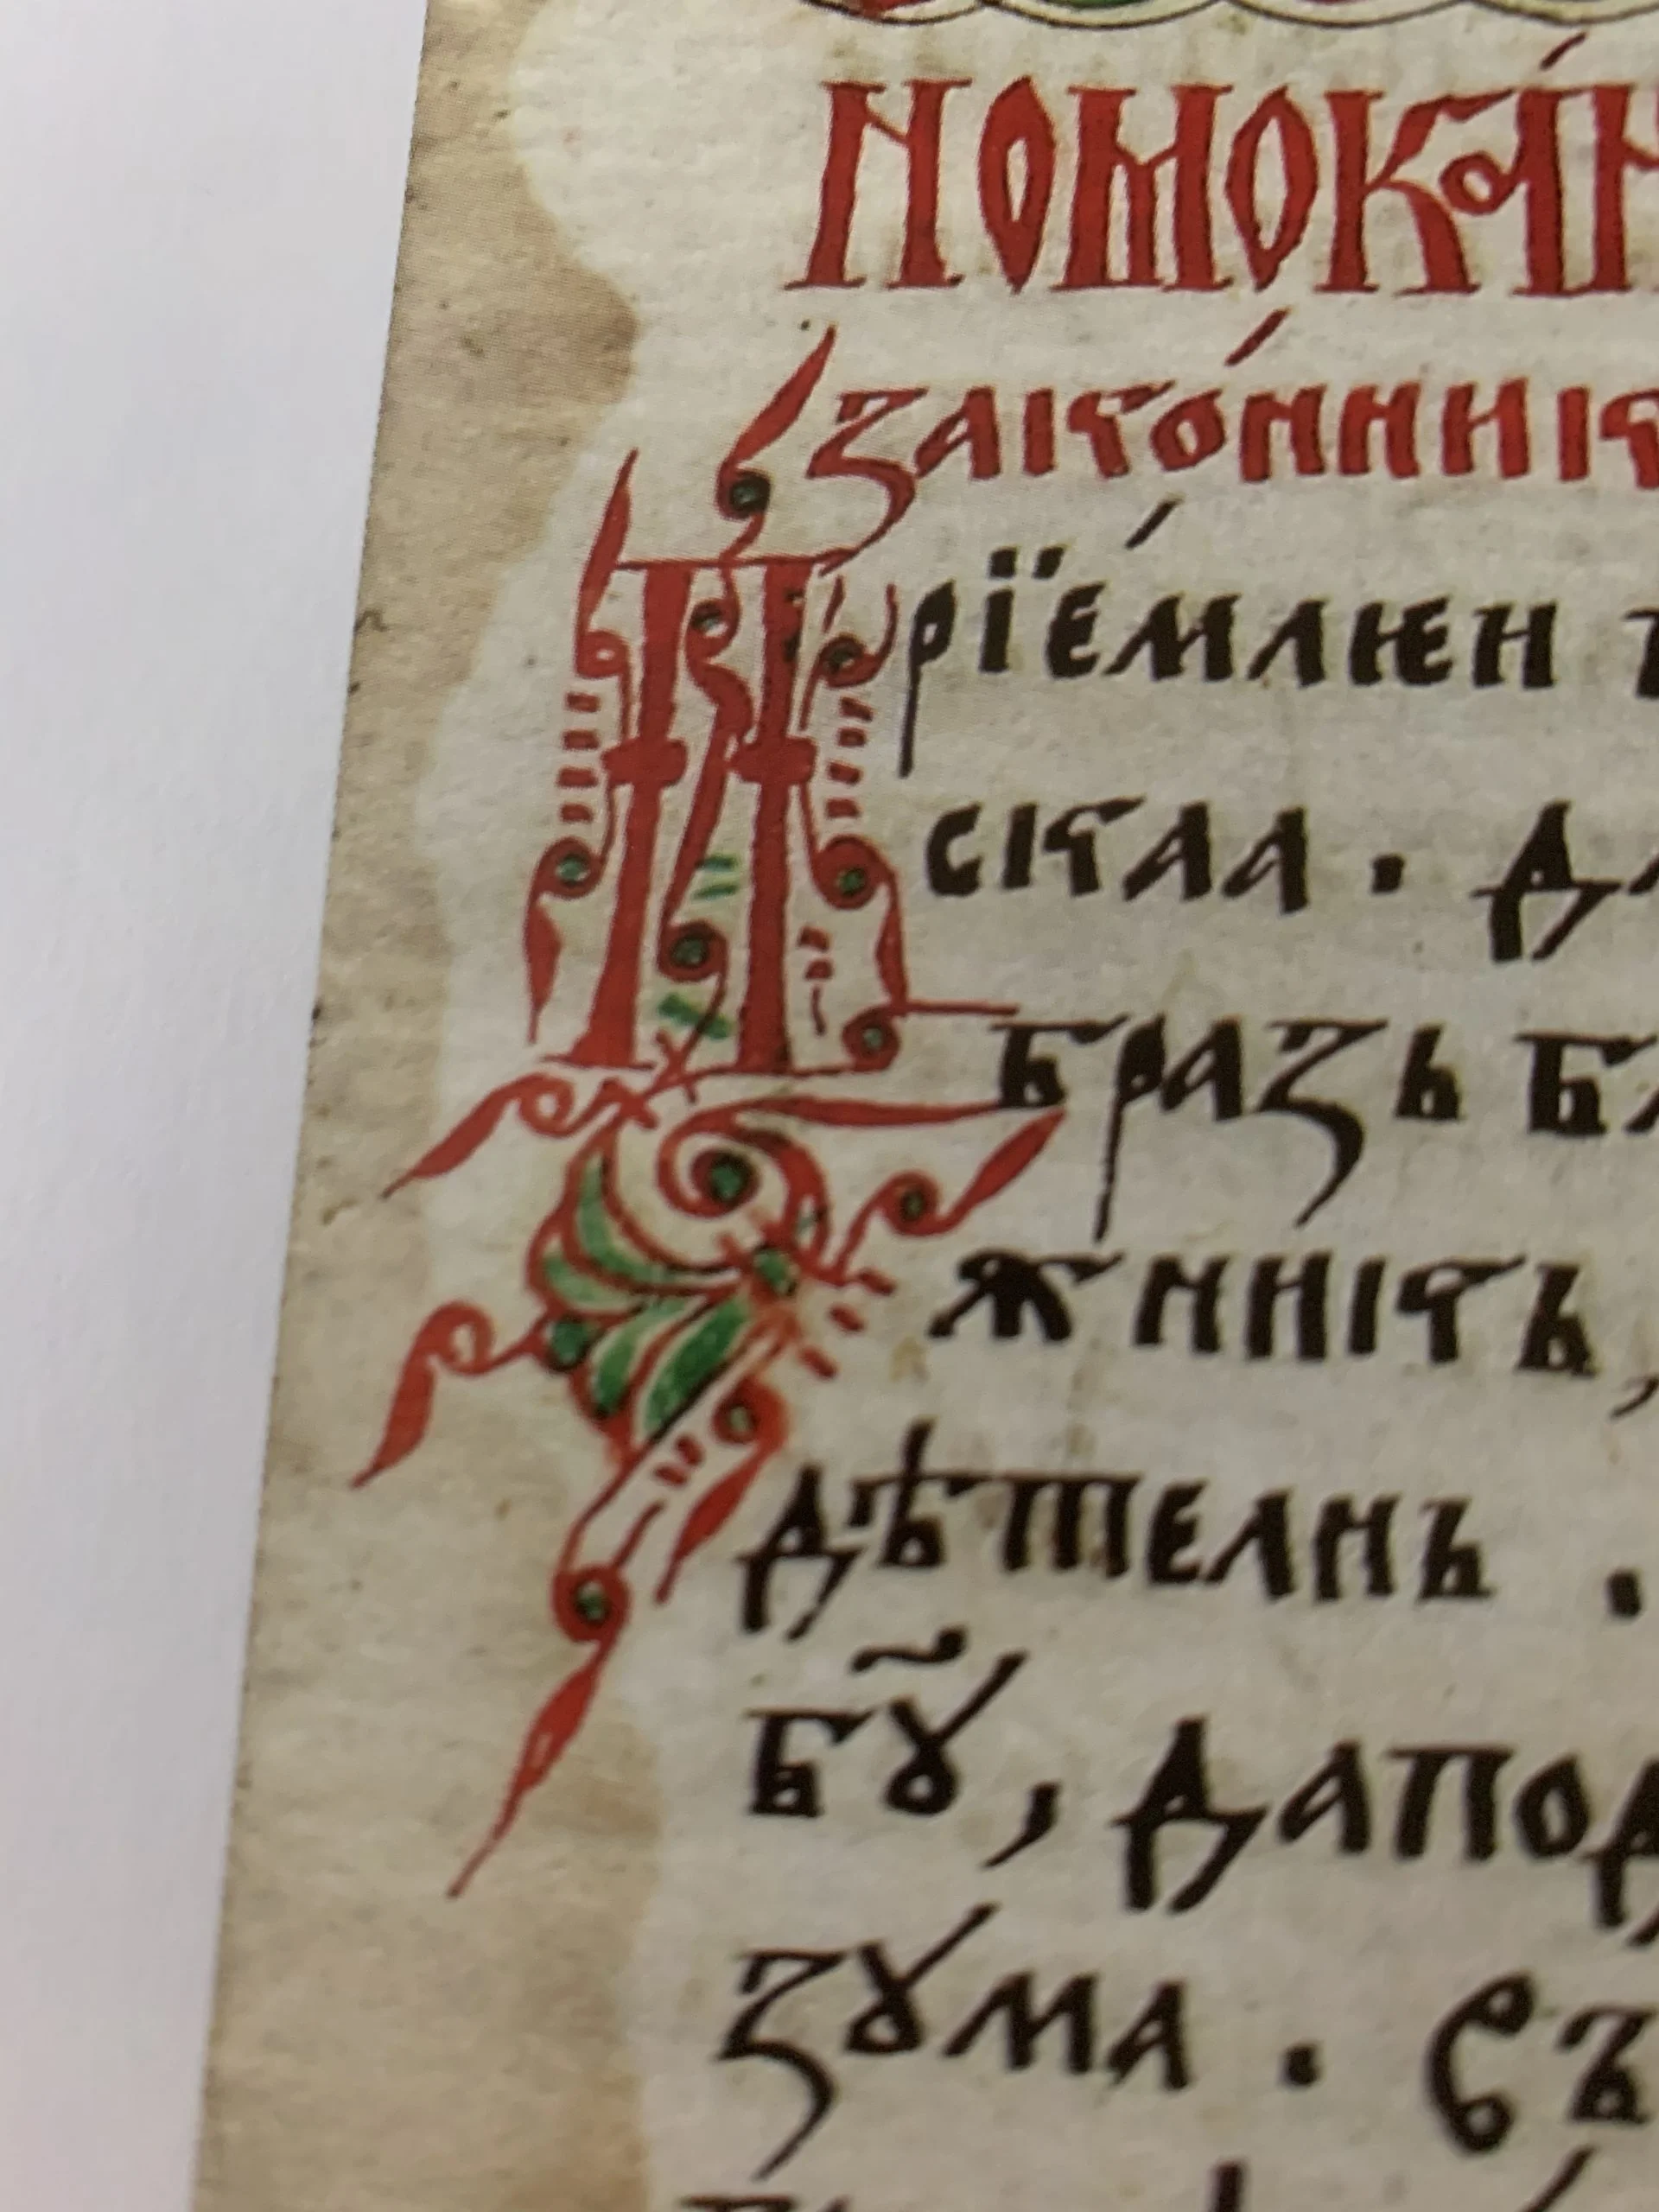 НОМОКА́Н
зако́нник
Прїе́млѥи
скаа . д
бразь б
жникь,
дѣтелнь .
бꙋ̃, дапод
зꙋма . съ